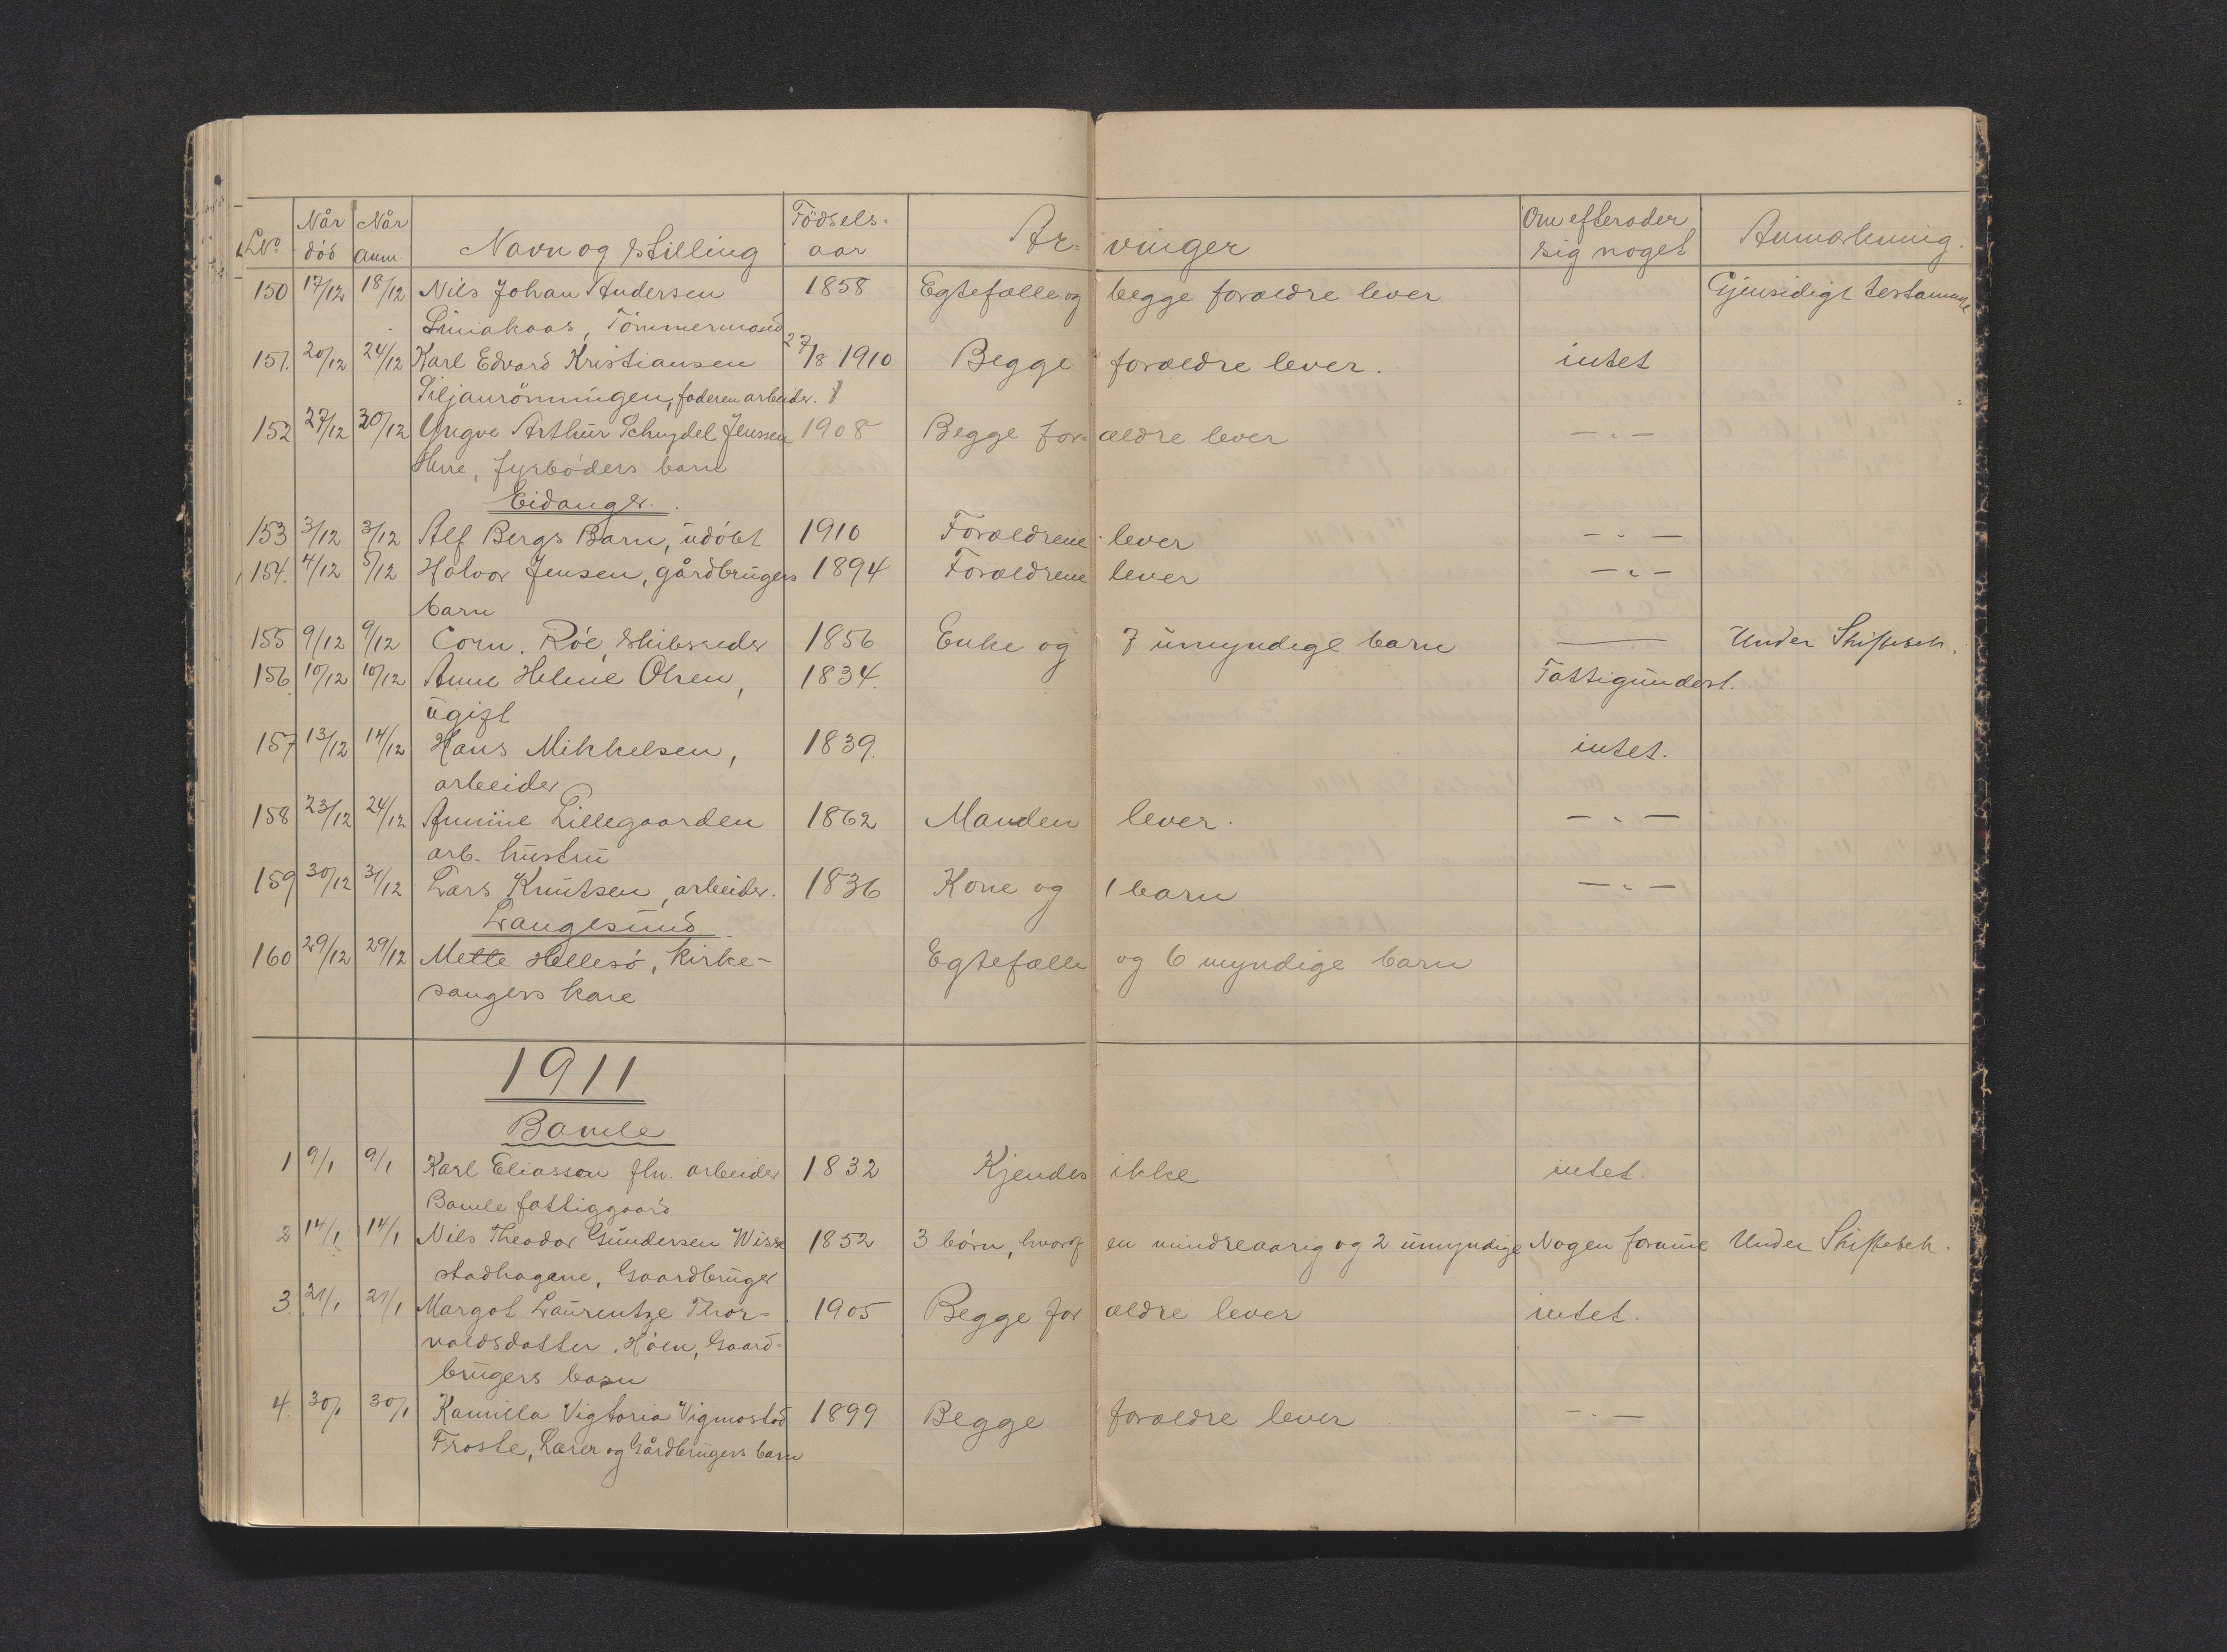 LNo. Når død Når anm. Navn og stilling Fødsels-aar Ar-vinger Om efterader sig noget Anmærkning.
150 17/12 18/12 Nils Johan Andersen 1858 Egtefælle og begge forældre lever Gjensidigt testamente
Tömmermand
151. 20/12 24/12 Karl Edvard Kristiansen 27/8 1910 Begge forældre lever. intet
faderen arbeider.
152 27/12 30/12 Yngve Arthur Schugdel Jenssen 1908 Begge for-ældre lever — " —
Herre, fyrbøders barn
Eidanger.
153 3/12 3/12 Alf Bergs Barn, udøbt 1910 Forældrene lever — " —
154. 4/12 5/12 Halvor Jensen, gårdbrugers 1894 Forældrene lever — " —
barn
155 9/12 9/12 Corn. Röe, skibsreder 1856 Enke og 7 umyndige barn — Under Skiftebeh.
156. 10/12 10/12 Anne Helene Olsen, 1834. Fattigunderst.
ugift
157 13/12 14/12 Hans Mikkelsen, 1839. intet.
arbeider
158 23/12 24/12 Annine Lillegaarden 1862 Manden lever. — " —
arb. hustru
159 30/12 31/12 Lars Knutsen, arbeider. 1836 Kone og 1 barn — " —
Langesund
160 29/12 29/12 Mette Hellesö, Kirke- Egtefælle og 6 myndige barn
sangers kone
1911
Bamle
1 9/1 9/1 Karl Eliassen fhv. arbeider 1832 Kjendes ikke intet.
Bamle fattiggaard
2 14/1 14/1 Nils Theodor Gundersen Wisse 1852 3 börn, hvoraf en mindreaarig og 2 umyndige Nogen formue Under Skiftebeh.
stadhagane, Gaardbruger
3. 21/1 21/1 Margot Laurentze Thor- 1905 Begge for ældre lever intet.
valdsdatter. Höen, Gaard-
brugers barn
4. 30/1 30/1 Kamilla Vigtoria Vigmostad 1899 Begge forældre lever — " —
Froste, Lærer og Gårdbrugers barn